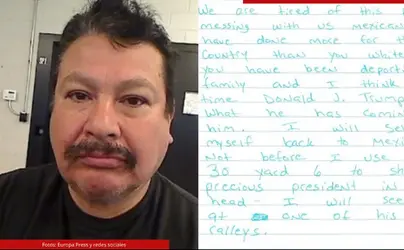 We are tired of this
messing with us mexican
have done more for th
country than you white
you have been deporti
family and I think
time Donald J. Trump
What he has comin
him. I will Sel
myself back to Mexi
Not before I use
30 yard 6 to sh
precious president in
head - I will see
at one of his
ralleys.
Fotos: Europa Press y redes sociales